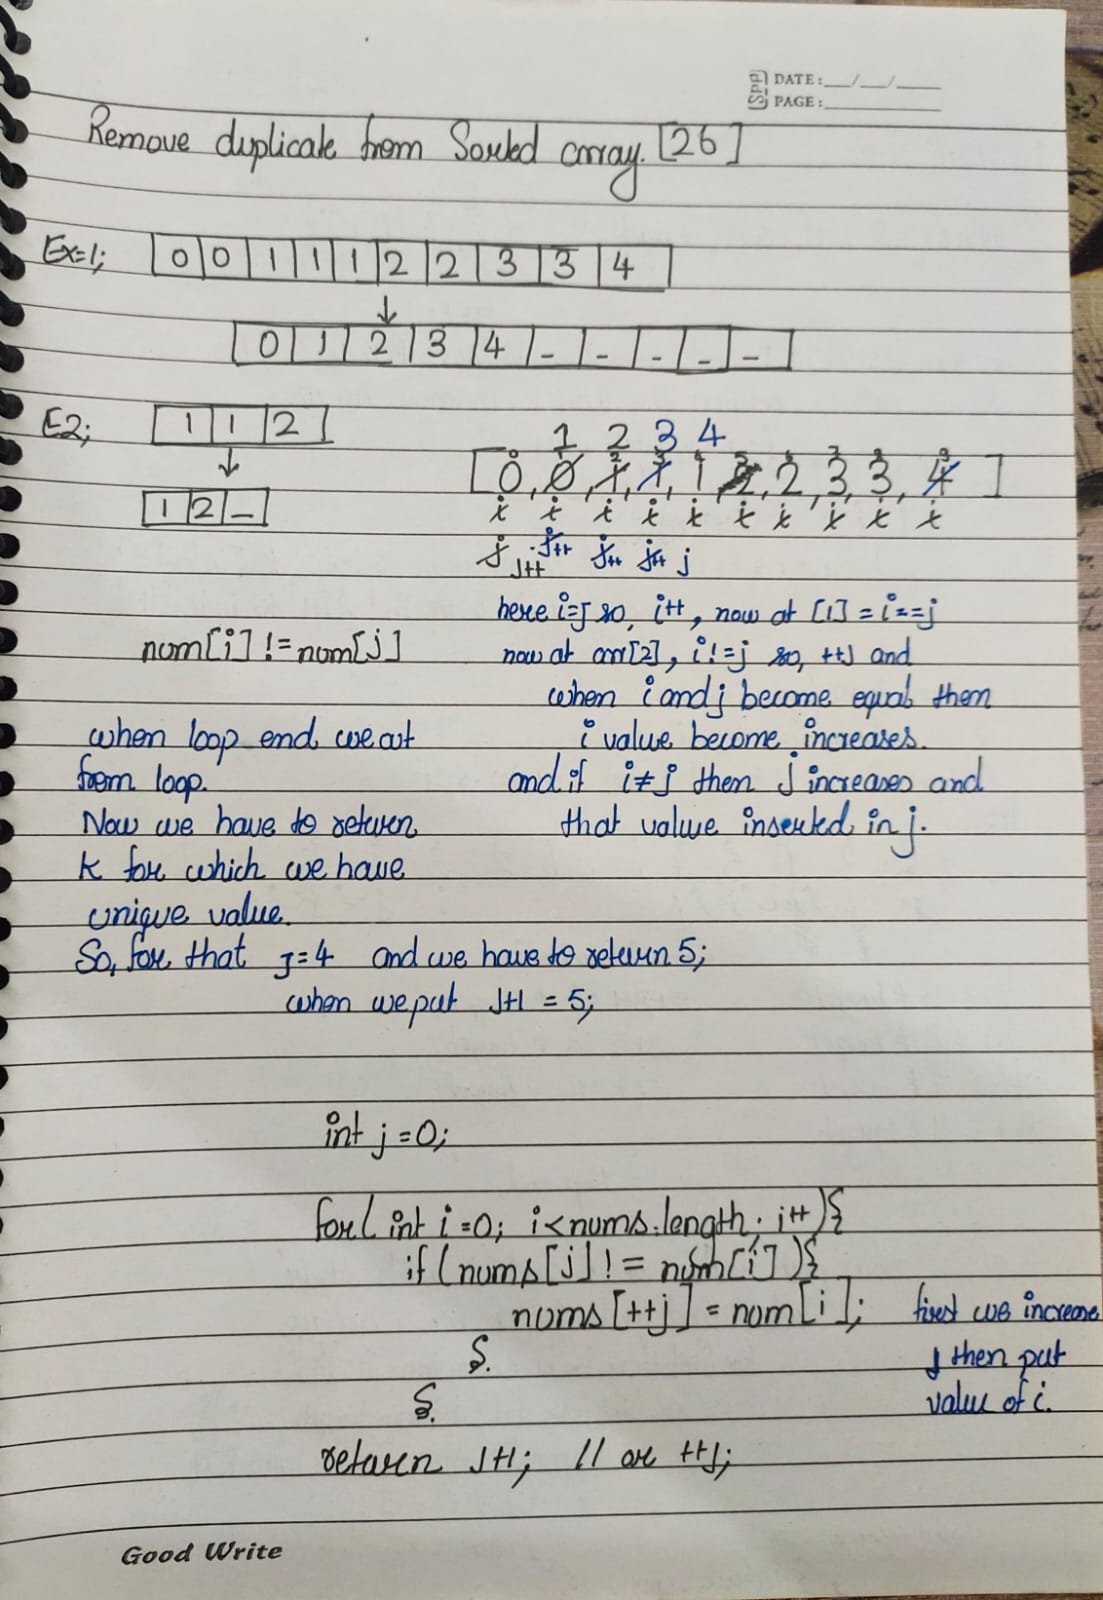 SPP DATE:__/__/____
PAGE:__________
Remove duplicate from Sorted array. [26]
Ex=1; 0 0 1 1 1 2 2 3 3 4
↓
0 1 2 3 4 _ _ _ _ _
E2; 1 1 2
↓
1 2 _
1 2 3 4
[0, 0, 1, 1, 1, 2, 2, 3, 3, 4]
i i i i i i i i i i
j j++ j++ j++ j++ j
nom[i] != nom[j]
here i=j so, i++, now at [1] = i==j
now at arr[2], i!=j so, ++j and
when i and j become equal them
i value become increases.
and if i≠j then j increases and
that value inserted in j.
when loop end we out
from loop.
Now we have to return
k for which we have
unique value.
So, for that j=4 and we have to return 5;
when we put j+1 = 5;
int j=0;
for( int i=0; i<nums.length; i++ ){
if (nums[j] != num[i] ){
nums [++j] = num[i]; first we increase
j then put
value of i.
}
}
return j+1; // or ++j;
Good Write